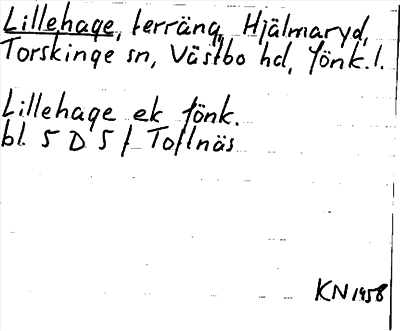 Lillehage, terräng, Hjälmaryd,
Torskinge sn, Västbo hd, Jönk. l.
Lillehage ek Jönk.
bl. 5 D 5 f Tollnäs
KN 1958